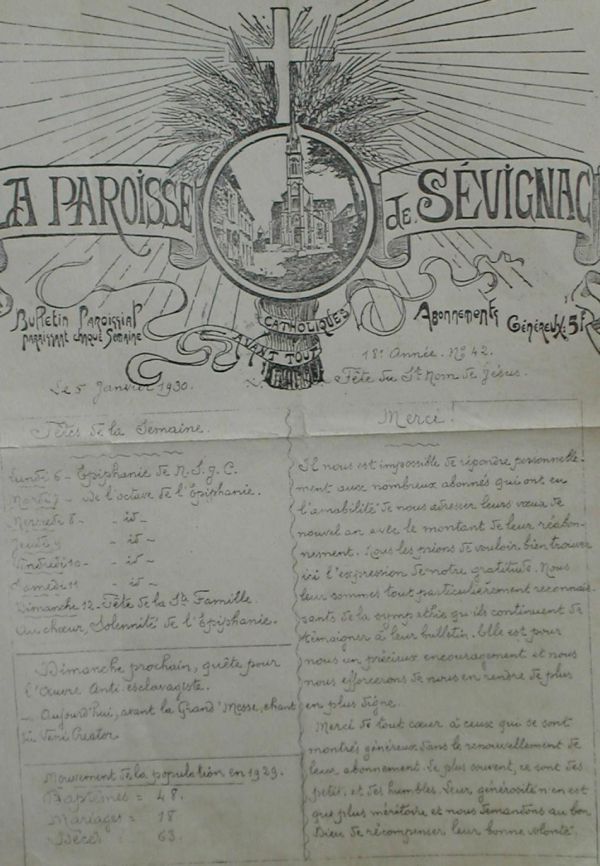 LA PAROISSE de SÉVIGNAC
Bulletin Paroissial
paraissant chaque Semaine
CATHOLIQUES
AVANT TOUT
Abonnements
Généreux: 5F
18e Année. No 42.
Le 5 Janvier 1930.
Fête du St Nom de Jésus.
Fêtes de la Semaine.
Lundi 6 - Epiphanie de N.S.J.C.
Mardi 7 - de l'octave de l'Epiphanie.
Mercredi 8 - id -
Jeudi 9 - id -
Vendredi 10 - id -
Samedi 11 - id -
Dimanche 12 - Fête de la Ste Famille.
Au chœur, Solennité de l'Epiphanie.
Dimanche prochain, quête pour
l'Œuvre Anti-esclavagiste.
- Aujourd'hui, avant la Grand'Messe, chant
du Veni Creator.
Mouvement de la population en 1929.
Baptêmes = 48.
Mariages = 18
Décès = 63.
Merci!
Il nous est impossible de répondre personnelle-
ment aux nombreux abonnés qui ont eu
l'amabilité de nous adresser leurs vœux de
nouvel an avec le montant de leur réabon-
nement. Nous les prions de vouloir bien trouver
ici l'expression de notre gratitude. Nous
leur sommes tout particulièrement reconnais-
sants de la sympathie qu'ils continuent de
témoigner à leur bulletin. Elle est pour
nous un précieux encouragement et nous
nous efforcerons de nous en rendre de plus
en plus digne.
Merci de tout cœur à ceux qui se sont
montrés généreux dans le renouvellement de
leur abonnement. Le plus souvent, ce sont des
petits et des humbles. Leur générosité n'en est
que plus méritoire et nous demandons au bon
Dieu de récompenser leur bonne volonté.